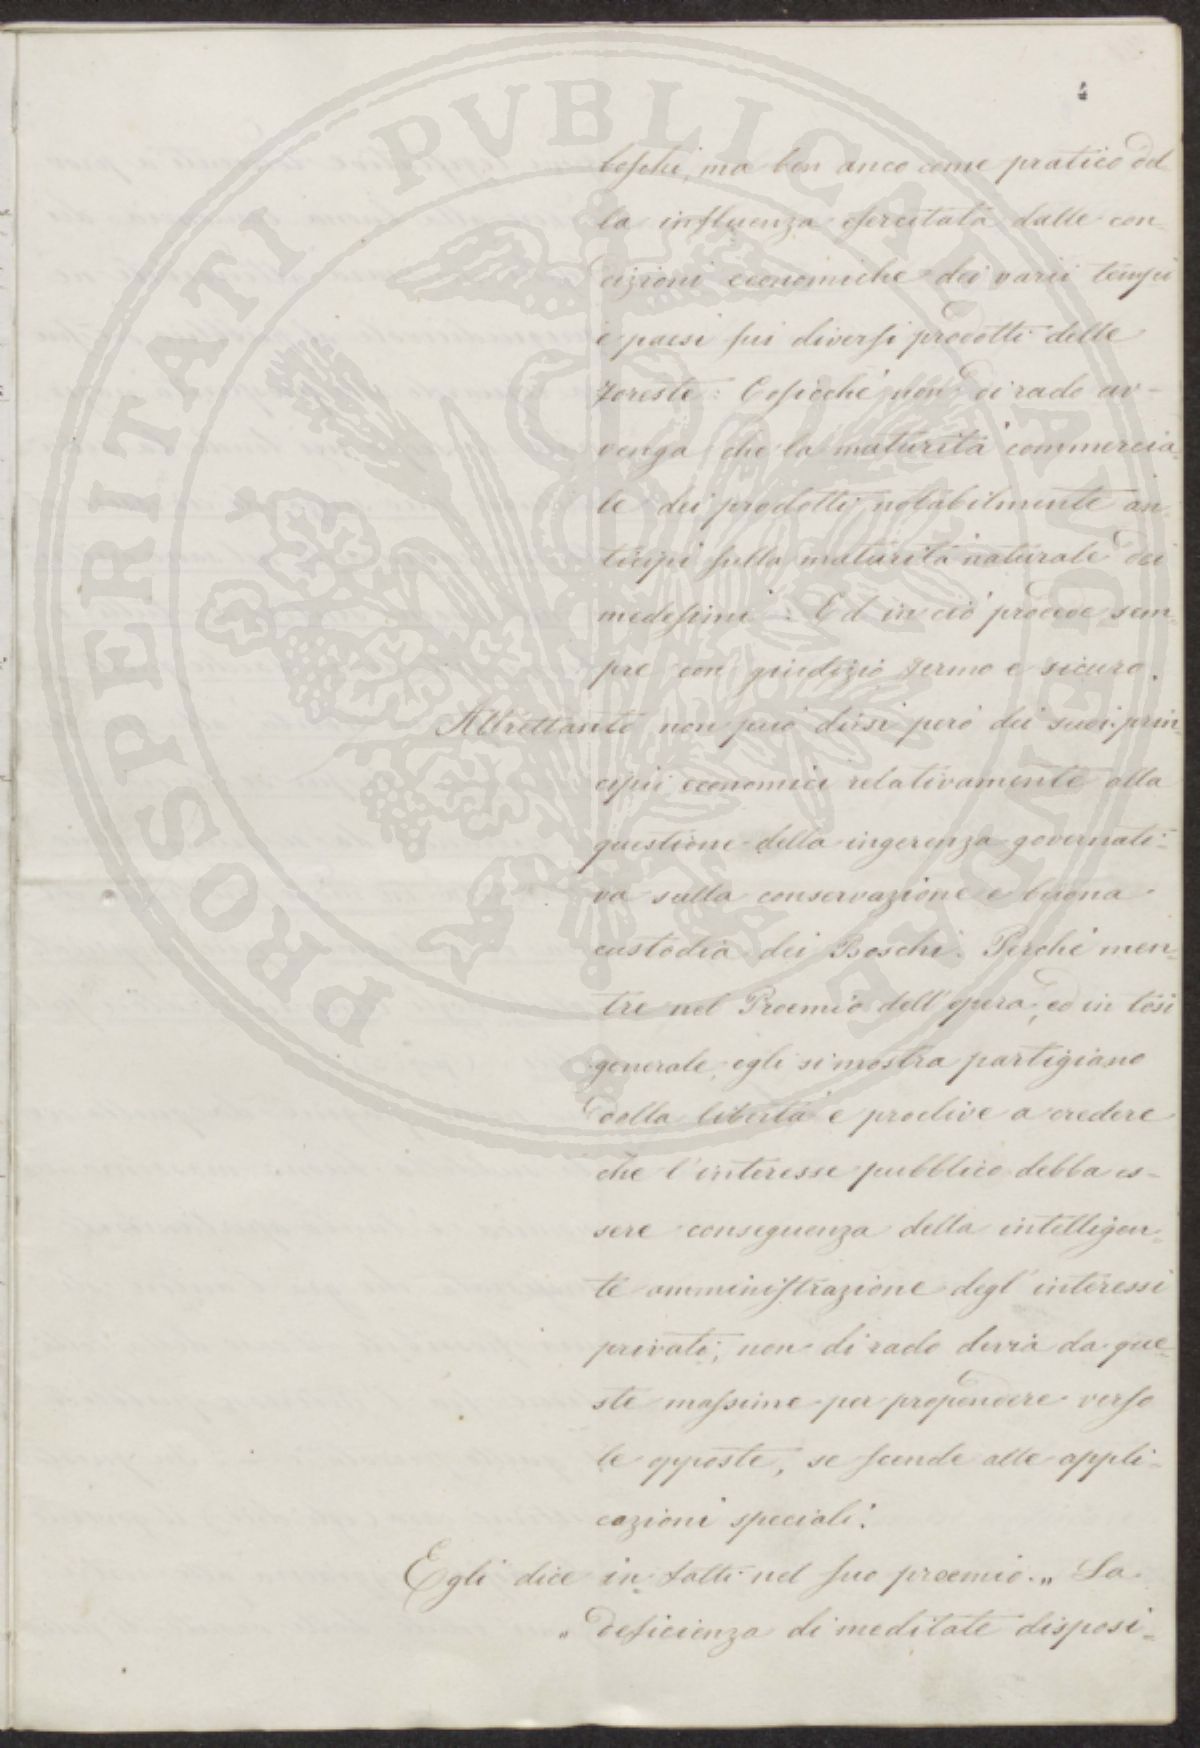 4
boschi, ma ben anco come pratico del
la influenza esercitata dalle con
dizioni economiche dei varii tempi
e paesi sui diversi prodotti delle
foreste: Cosicché non di rado av-
venga che la maturità commercia
le dei prodotti notabilmente an
ticipi sulla maturità naturale dei
medesimi: Ed in ciò procede sem
pre con giudizio fermo e sicuro.
Altrettanto non può dirsi però dei suoi prin
cipii economici relativamente alla
questione della ingerenza governati=
va sulla conservazione e buona
custodia dei Boschi. Perché men
tre nel Proemio dell'opera, ed in tesi
generale, egli si mostra partigiano
della libertà e proclive a credere
che l'interesse pubblico debba es-
sere conseguenza della intelligen=
te amministrazione degl'interessi
privati; non di rado devia da que
ste massime per propendere verso
le opposte, se scende alle appli=
cazioni speciali:
Egli dice in fatti nel suo proemio. „ La
„ deficienza di meditate disposi=
PROSPERITATI PVBLICAE AVGENDAE